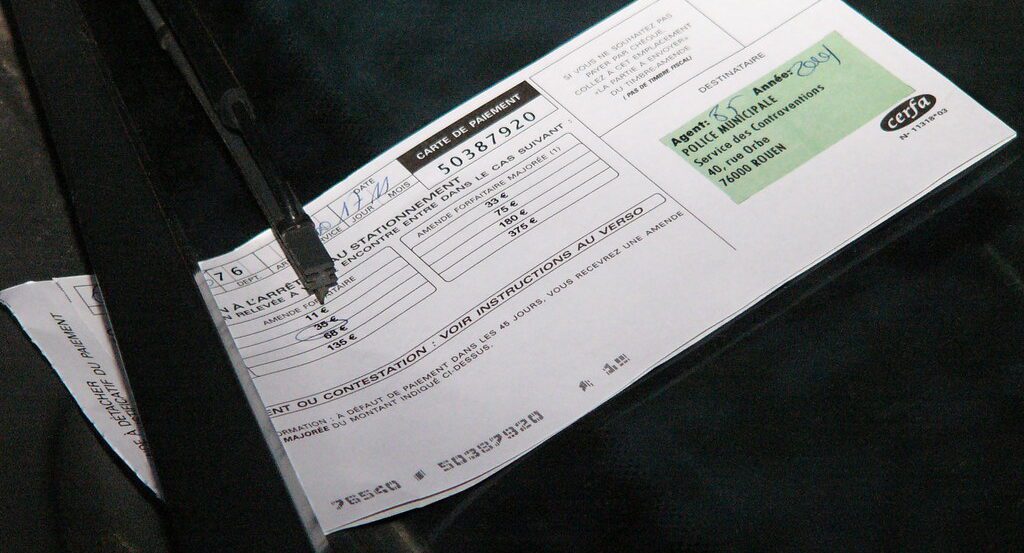 CARTE DE PAIEMENT
50387920
SI VOUS NE SOUHAITEZ PAS
PAYER PAR CHÈQUE,
COLLEZ À CET EMPLACEMENT
«LA PARTIE À ENVOYER»
DU TIMBRE-AMENDE
(PAS DE TIMBRE FISCAL)
DESTINATAIRE
Agent: Année:
POLICE MUNICIPALE
Service des Contraventions
40, rue Orbe
76000 ROUEN
cerfa
N° 11318*03
DATE
17 11
JOUR MOIS
76
DEPT
AU STATIONNEMENT
RELEVÉE À
ENCONTRE ENTRE DANS LE CAS SUIVANT :
AMENDE FORFAITAIRE
11 €
35 €
68 €
135 €
AMENDE FORFAITAIRE MAJORÉE (1)
33 €
75 €
180 €
375 €
ENT OU CONTESTATION : VOIR INSTRUCTIONS AU VERSO
RMATION : À DÉFAUT DE PAIEMENT DANS LES 45 JOURS, VOUS RECEVREZ UNE AMENDE
MAJORÉE DU MONTANT INDIQUÉ CI-DESSUS.
76540 50387920
À DÉTACHER
DU PAIEMENT